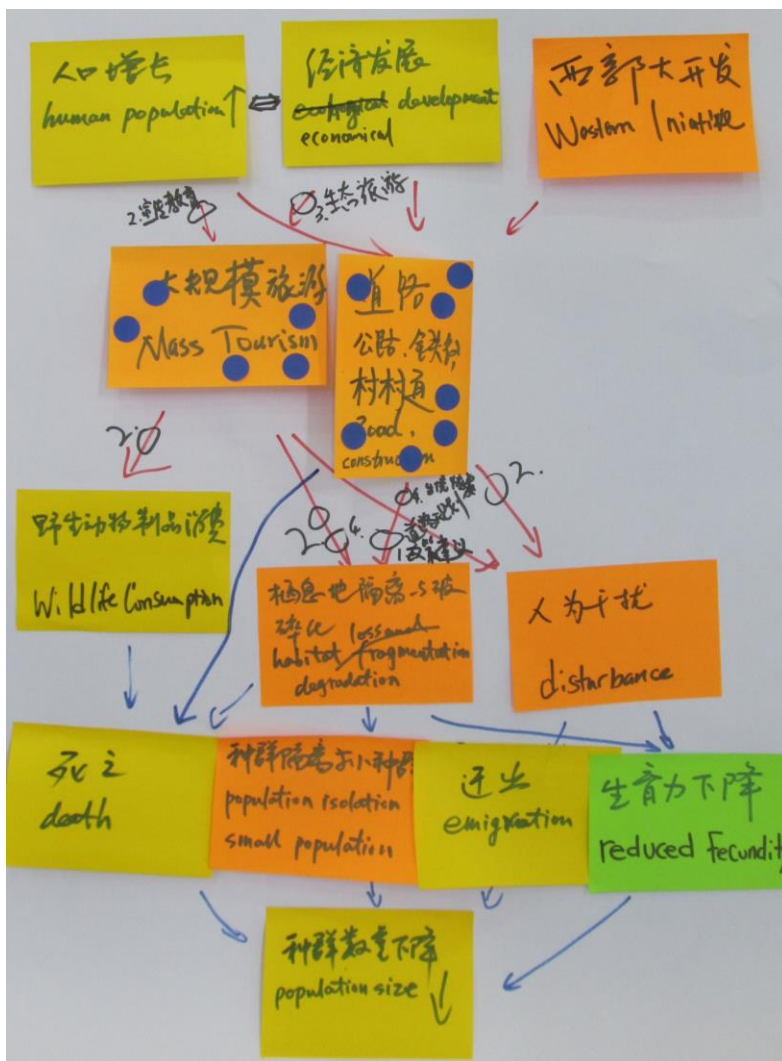 人口增长
human population ↑
⇔
经济发展
development
economical
西部大开发
Western Iniative
2.
3.生态旅游
大规模旅游
Mass Tourism
道路
公路、铁路,
村村通
Road,
construction
2.
2
4.
2.
野生动物制品消费
Wildlife Consumption
栖息地隔离与破
碎化
habitat fragmentation
degradation
人为干扰
disturbance
死亡
death
种群隔离与小种群
population isolation
small population
迁出
emigration
生育力下降
reduced Fecundity
种群数量下降
population size ↓